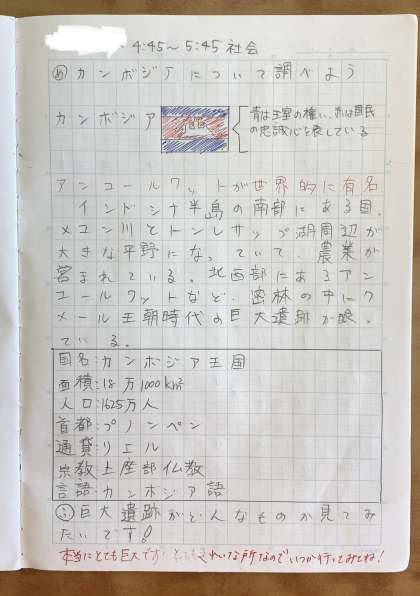 4:45～5:45 社会
め カンボジアについて調べよう
カンボジア
青は王室の権い、赤は国民
の忠誠心を表している
アンコールワットが世界的に有名
インドシナ半島の南部にある国。
メコン川とトンレサップ湖周辺が
大きな平野になっていて、農業が
営まれている。北西部にあるアン
コールワットなど、密林の中にク
メール王朝時代の巨大遺跡が眠っ
ている。
国名:カンボジア王国
面積:18万1000km²
人口:1625万人
首都:プノンペン
通貨:リエル
宗教:上座部仏教
言語:カンボジア語
ふ 巨大遺跡がどんなものか見てみ
たいです!
本当にとても巨大です!とてもきれいな所なのでいつか行ってみてね!